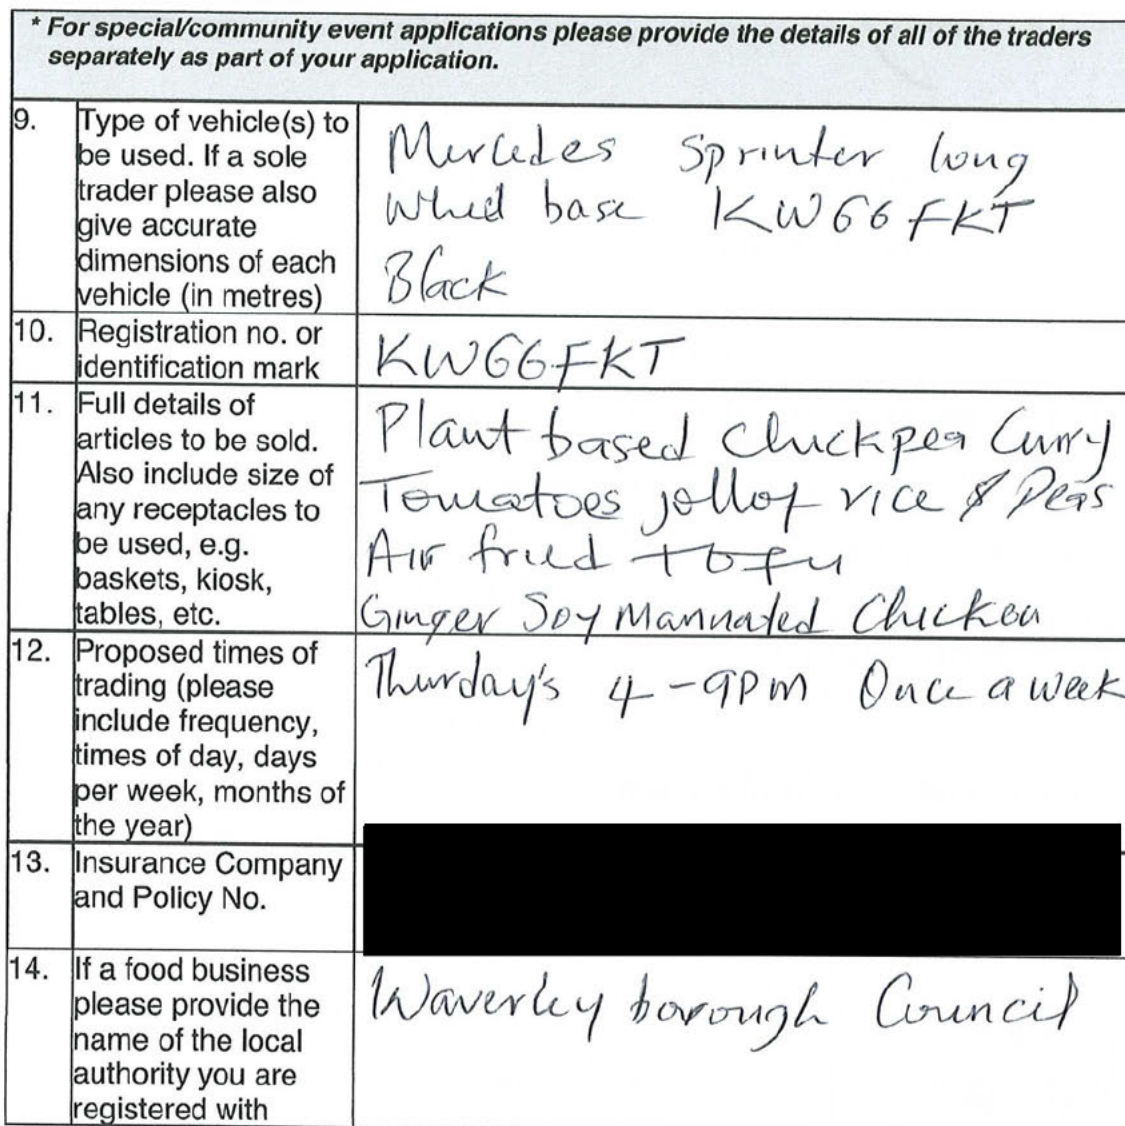 * For special/community event applications please provide the details of all of the traders
separately as part of your application.
9. Type of vehicle(s) to
be used. If a sole
trader please also
give accurate
dimensions of each
vehicle (in metres)
Mercedes Sprinter long
Wheel base KW66FKT
Black
10. Registration no. or
identification mark
KW66FKT
11. Full details of
articles to be sold.
Also include size of
any receptacles to
be used, e.g.
baskets, kiosk,
tables, etc.
Plant based Chickpea Curry
Tomatoes jollof rice & Peas
Air fried tofu
Ginger Soy Marinated Chicken
12. Proposed times of
trading (please
include frequency,
times of day, days
per week, months of
the year)
Thurday's 4-9PM Once a week
13. Insurance Company
and Policy No.
14. If a food business
please provide the
name of the local
authority you are
registered with
Waverley borough Council